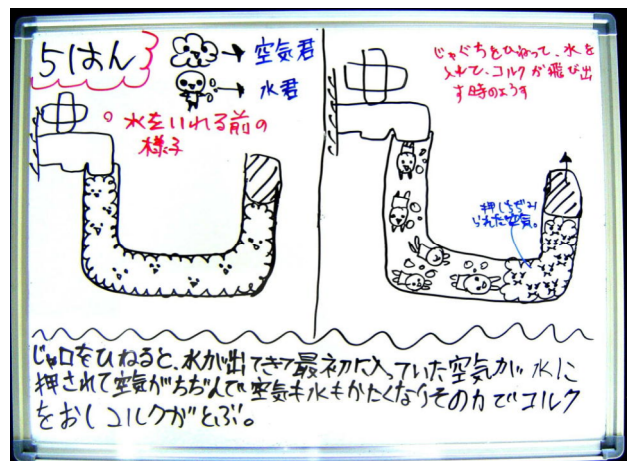 5はん
空気君
水君
水をいれる前の
様子
じゃぐちをひねって、水を
入れて、コルクが飛び出
す時のようす
押しちぢみ
られた空気。
じゃ口をひねると、水が出てきて最初に入っていた空気が水に
押されて空気がちぢんで空気も水もかたくなりその力でコルク
をおしコルクがとぶ。